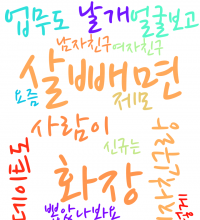 업무도 날개 얼굴보고
남자친구 여자친구
살빼면
요즘 제모
사람이
신규는
데이트도
화장
뽑았나봐요